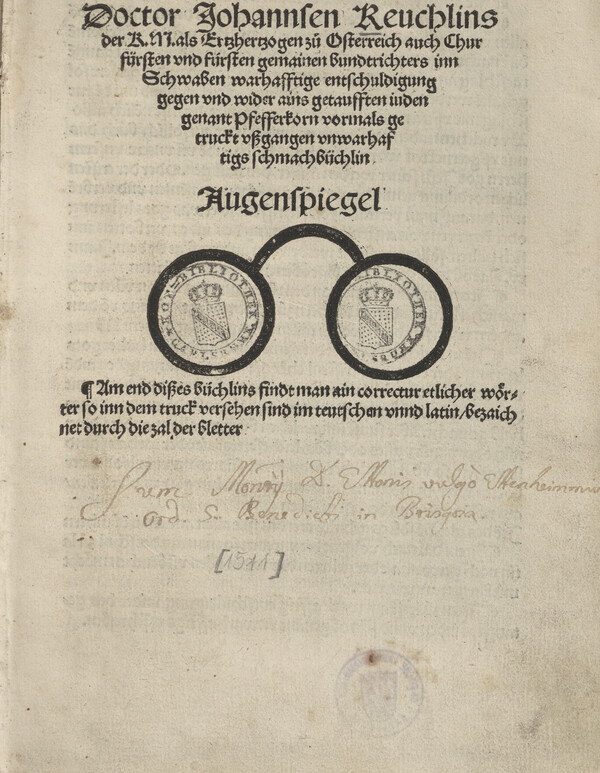 Doctor Johannsen Reuchlins
der K. M. als Ertzhertzogen zů Osterreich auch Chur
fürsten vnd fürsten gemainen bundtrichters inn
Schwaben warhafftige entschuldigung
gegen vnd wider ains getaufften iuden
genant Pfefferkorn vormals ge
truckt vßgangen vnwarhaf
tigs schmachbüchlin
Augenspiegel
¶ Am end dißes büchlins findt man ain correctur etlicher wőr⸗
ter so inn dem truck versehen sind im teutschen vnnd latin/ bezaich
net durch die zal der bletter
Monrij D. Ettonis vulgò
Ord. S. Benedicti in Brisgoia.
[1511]